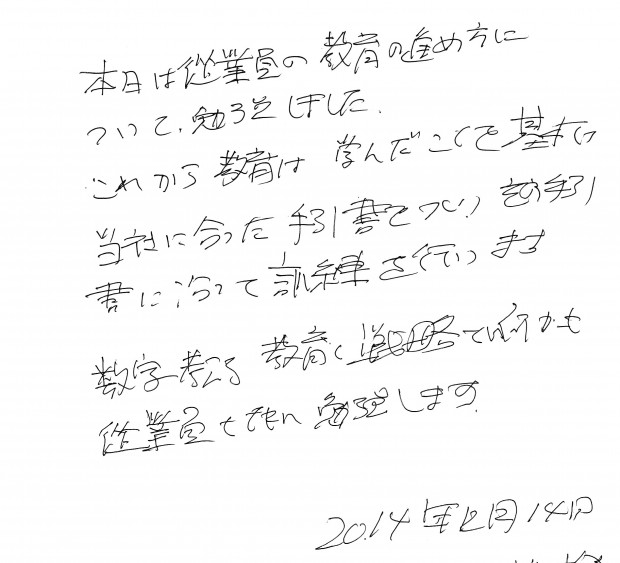 本日は従業員の教育の進め方に
ついて、勉強しました。
これから教育は学んだことを基本に
当社に合った手引書をつくり その手引
書に沿って訓練を行います
数字考える教育と戦略て何かも
従業員と共に勉強します。
2014年12月14日